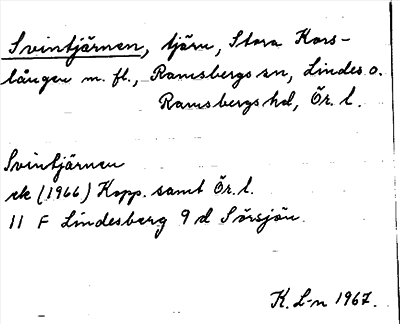 Svintjärnen, tjärn, Stora Kors-
lången m. fl., Ramsbergs sn, Lindes o.
Ramsbergs hd, Ör. l.
Svintjärnen
ek (1966) Kopp. samt Ör. l.
11 F Lindesberg 9 d Sörsjön.
K. L-n 1967.